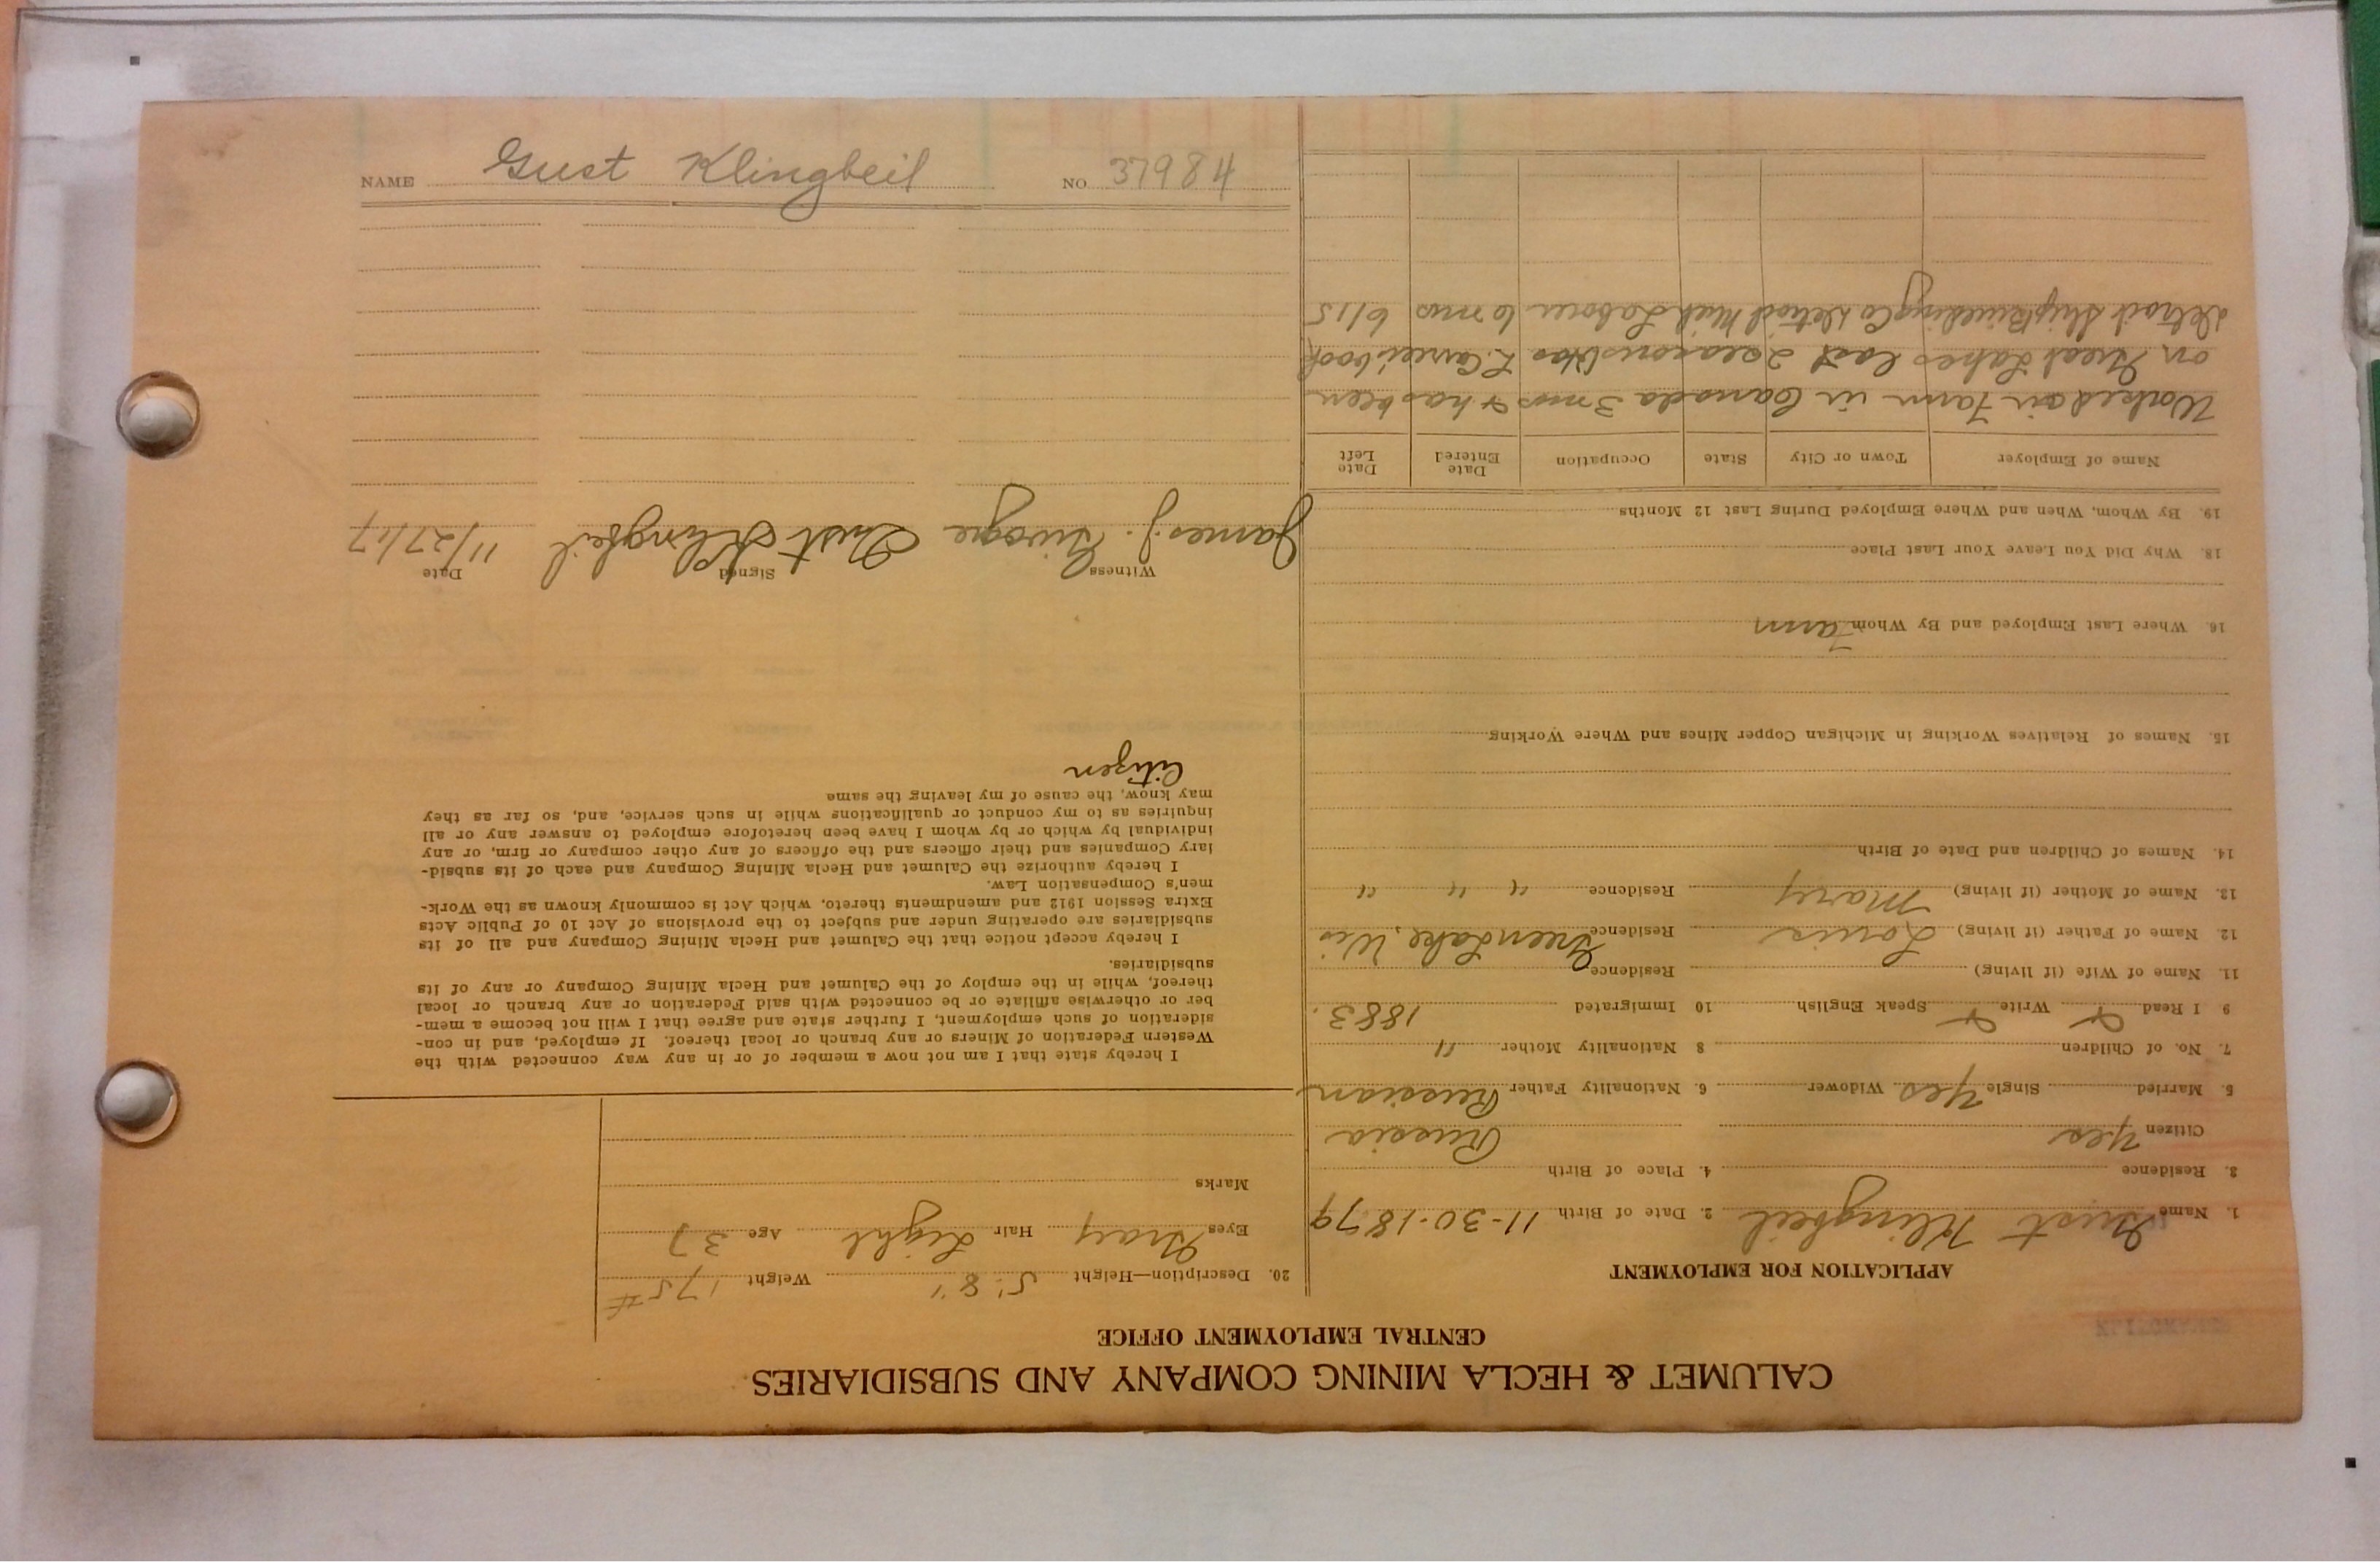 CALUMET & HECLA MINING COMPANY AND SUBSIDIARIES
CENTRAL EMPLOYMENT OFFICE
APPLICATION FOR EMPLOYMENT
1. Name Gust Klingbeil 2. Date of Birth 11-30-1879
3. Residence 4. Place of Birth
Citizen Yes Russia
5. Married Single Yes Widower 6. Nationality Father Russian
7. No. of Children 8 Nationality Mother "
9 I Read Write Speak English 10 Immigrated 1883.
11. Name of Wife (if living) Residence
12. Name of Father (if living) Louis Residence Green Lake, Wis
13. Name of Mother (if living) Mary Residence " " "
14. Names of Children and Date of Birth
15. Names of Relatives Working in Michigan Copper Mines and Where Working
16. Where Last Employed and By Whom Farm
18. Why Did You Leave Your Last Place
19. By Whom, When and Where Employed During Last 12 Months
Name of Employer Town or City State Occupation Date Entered Date Left
Worked on Farm in Canada 3 mos & has been
on Great Lakes last 2 seasons Has book
Detroit Ship Building Co Detroit Mich Laborer 6 mos 6/15
20. Description—Height 5' 8" Weight 175#
Eyes Gray Hair Light Age 37
Marks
I hereby state that I am not now a member of or in any way connected with the
Western Federation of Miners or any branch or local thereof. If employed, and in con-
sideration of such employment, I further state and agree that I will not become a mem-
ber or otherwise affiliate or be connected with said Federation or any branch or local
thereof, while in the employ of the Calumet and Hecla Mining Company or any of its
subsidiaries.
I hereby accept notice that the Calumet and Hecla Mining Company and all of its
subsidiaries are operating under and subject to the provisions of Act 10 of Public Acts
Extra Session 1912 and amendments thereto, which Act is commonly known as the Work-
men's Compensation Law.
I hereby authorize the Calumet and Hecla Mining Company and each of its subsid-
iary Companies and their officers and the officers of any other company or firm, or any
individual by which or by whom I have been heretofore employed to answer any or all
inquiries as to my conduct or qualifications while in such service, and, so far as they
may know, the cause of my leaving the same
Citizen
Witness Signed Date
James J. Gust Klingbeil 11/27/17
NAME Gust Klingbeil NO 37984